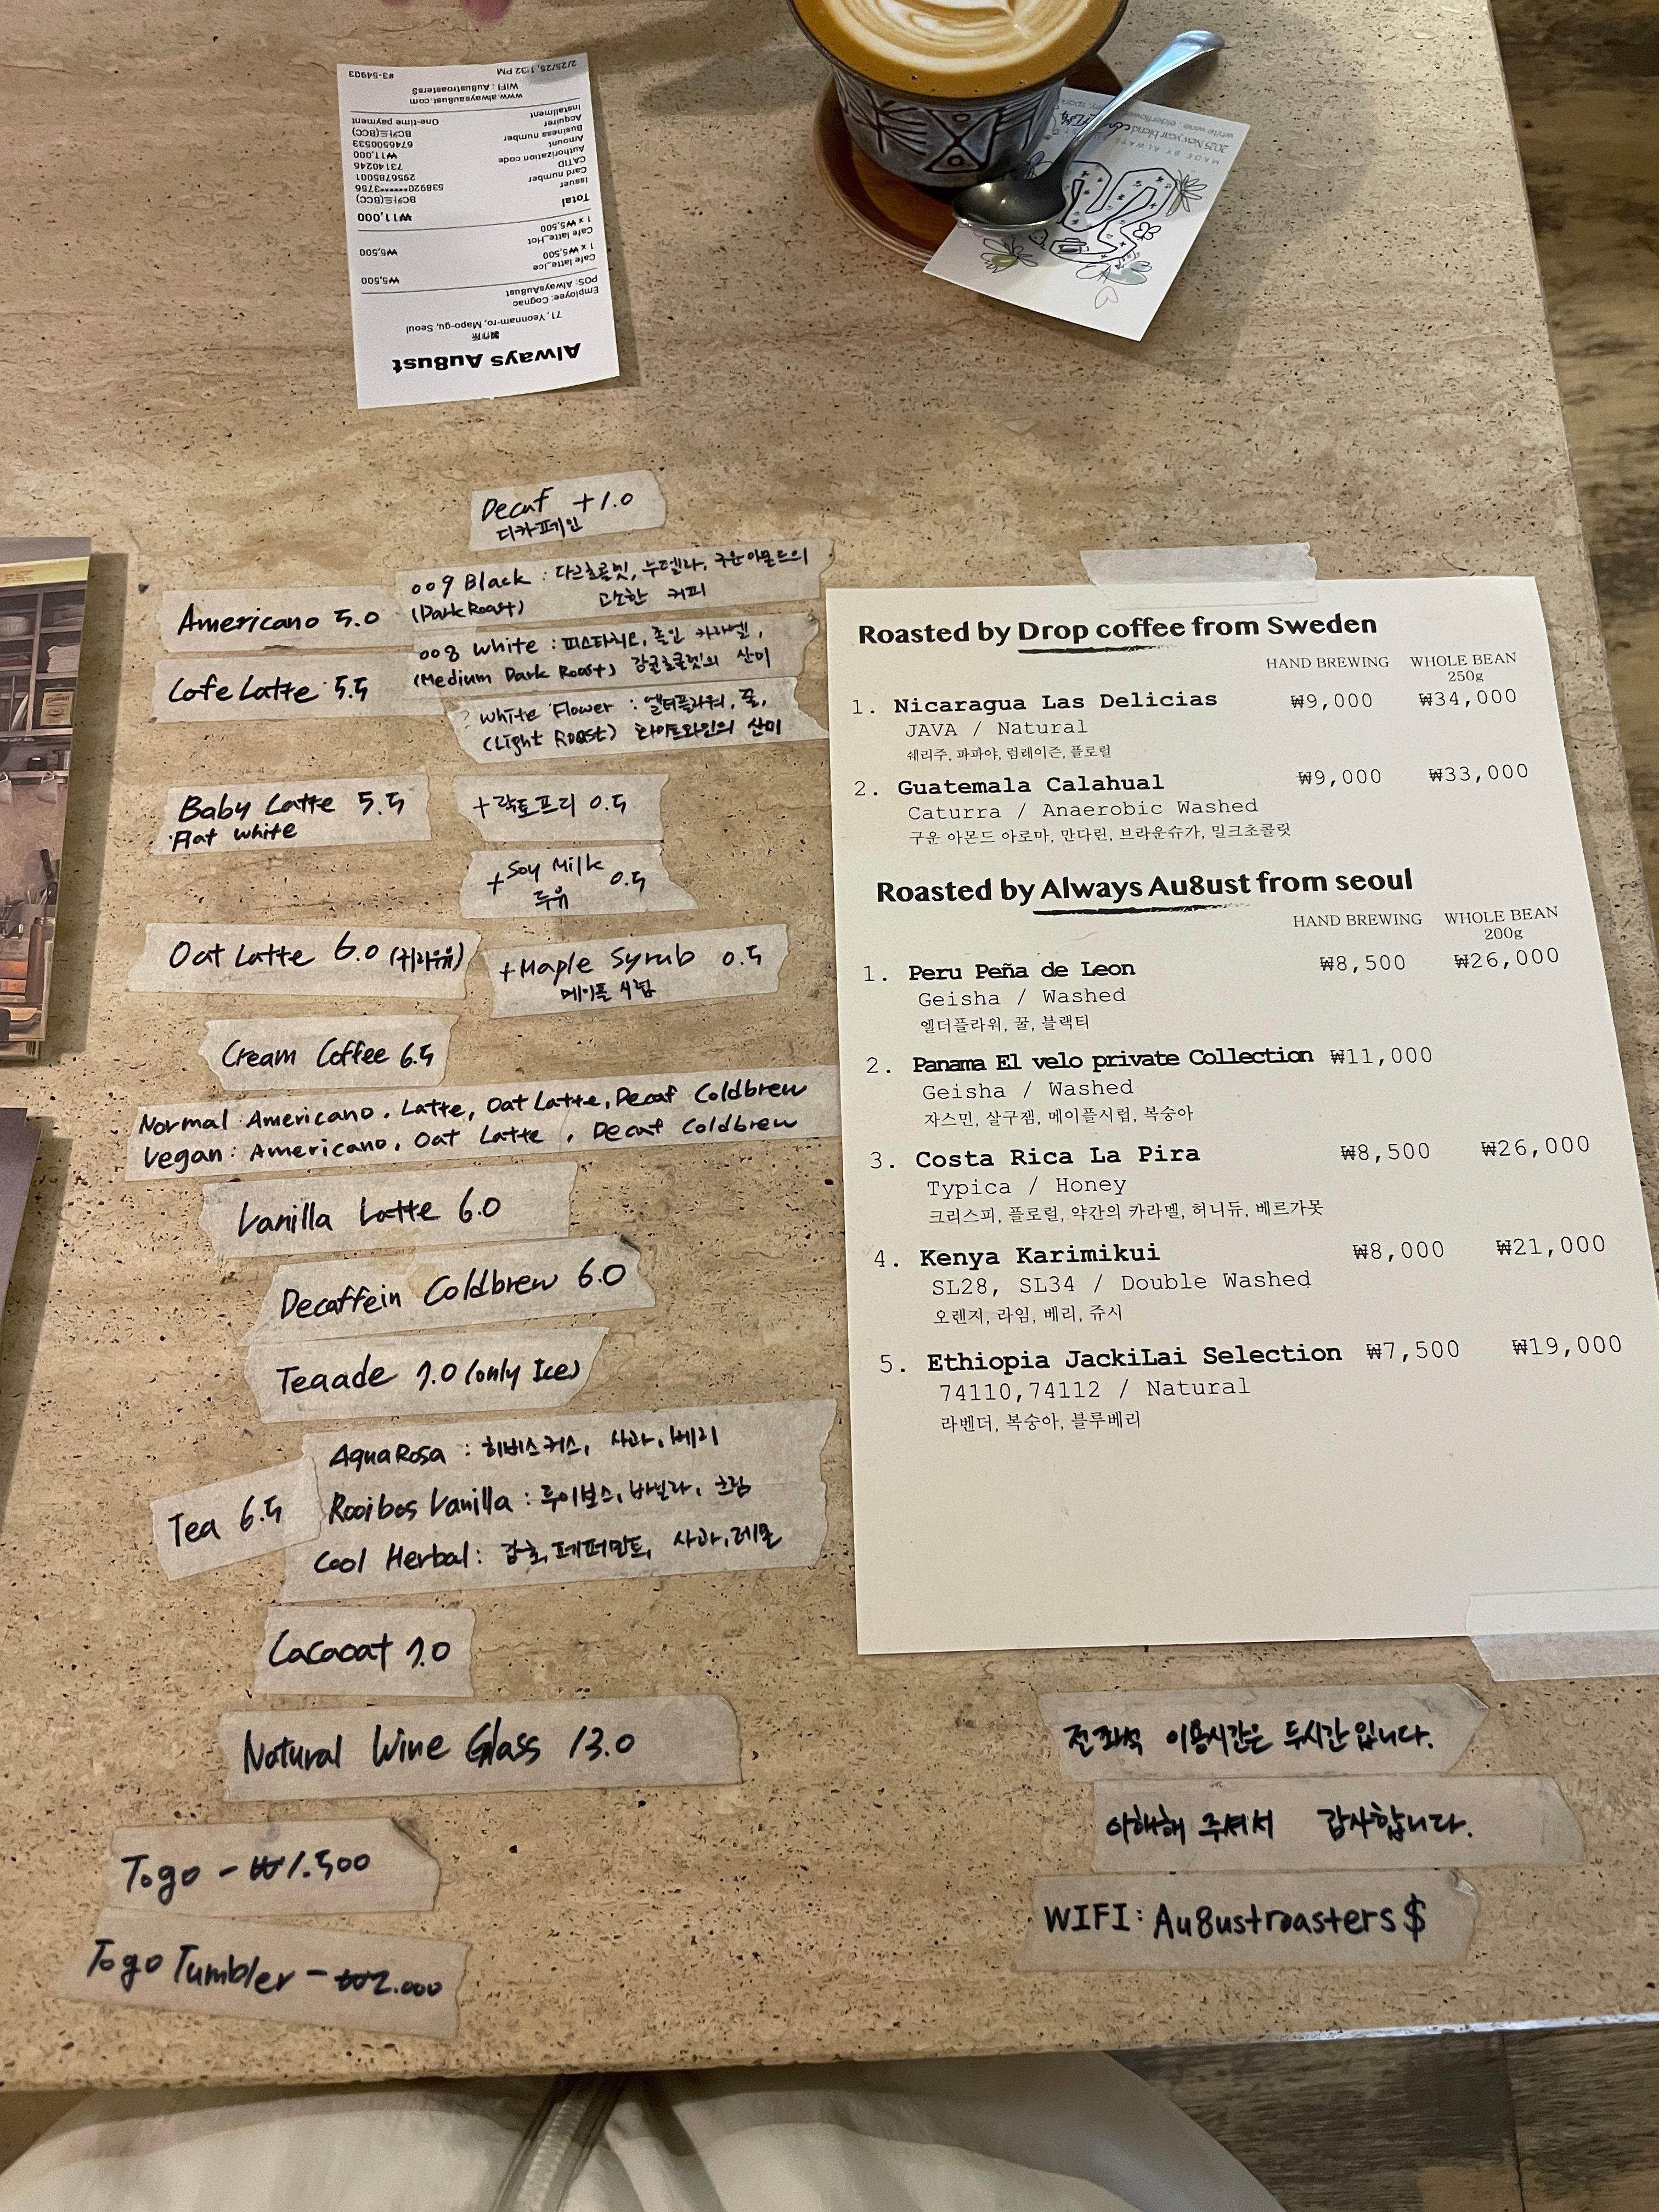 Always Au8ust
製作所
71, Yeonnam-ro, Mapo-gu, Seoul
Employee: Cognac
POS: AlwaysAu8ust
Cafe latte_Ice ₩5,500
1 x ₩5,500
Cafe latte_Hot ₩5,500
1 x ₩5,500
Total ₩11,000
Issuer BC카드(BC)
Card number 538920******3756
CATID 2956785001
Authorization code 73140246
Amount ₩11,000
Business number 6746500533
Acquirer BC카드(BCC)
Installment One-time payment
www.alwaysau8ust.com
WIFI : Au8ustroasters$
2/25/25, 1:32 PM #3-54903
MADE BY ALWAYS
2025 New year blend
white wine, elderflower
Decaf +1.0
디카페인
Americano 5.0
009 Black : 다크초콜릿, 누텔라, 구운아몬드의
(Dark Roast) 고소한 커피
Cafe Latte 5.5
008 White : 피스타치오, 졸인 카라멜,
(Medium Dark Roast) 감귤초콜릿의 산미
White Flower : 엘더플라워, 꿀,
(Light Roast) 화이트와인의 산미
Baby Latte 5.5
Flat white
+락토프리 0.5
+Soy Milk 0.5
두유
Oat Latte 6.0 (귀리우유)
+Maple Syrub 0.5
메이플 시럽
Cream Coffee 6.5
Normal: Americano, Latte, Oat Latte, Decaf Coldbrew
Vegan: Americano, Oat Latte, Decaf Coldbrew
Vanilla Latte 6.0
Decaffein Coldbrew 6.0
Teaade 7.0 (only Ice)
Tea 6.5
AquaRosa : 히비스커스, 사과, 베리
Rooibos Vanilla : 루이보스, 바닐라, 크림
Cool Herbal: 감초, 페퍼민트, 사과, 레몬
Cacaoat 7.0
Natural Wine Glass 13.0
Togo - ₩1.500
Togo Tumbler - ₩2.000
Roasted by Drop coffee from Sweden
HAND BREWING WHOLE BEAN
250g
1. Nicaragua Las Delicias ₩9,000 ₩34,000
JAVA / Natural
쉐리주, 파파야, 럼레이즌, 플로럴
2. Guatemala Calahual ₩9,000 ₩33,000
Caturra / Anaerobic Washed
구운 아몬드 아로마, 만다린, 브라운슈가, 밀크초콜릿
Roasted by Always Au8ust from seoul
HAND BREWING WHOLE BEAN
200g
1. Peru Peña de Leon ₩8,500 ₩26,000
Geisha / Washed
엘더플라워, 꿀, 블랙티
2. Panama El velo private Collection ₩11,000
Geisha / Washed
자스민, 살구잼, 메이플시럽, 복숭아
3. Costa Rica La Pira ₩8,500 ₩26,000
Typica / Honey
크리스피, 플로럴, 약간의 카라멜, 허니듀, 베르가못
4. Kenya Karimikui ₩8,000 ₩21,000
SL28, SL34 / Double Washed
오렌지, 라임, 베리, 쥬시
5. Ethiopia JackiLai Selection ₩7,500 ₩19,000
74110,74112 / Natural
라벤더, 복숭아, 블루베리
전좌석 이용시간은 두시간입니다.
이해해 주셔서 감사합니다.
WIFI: Au8ustroasters$